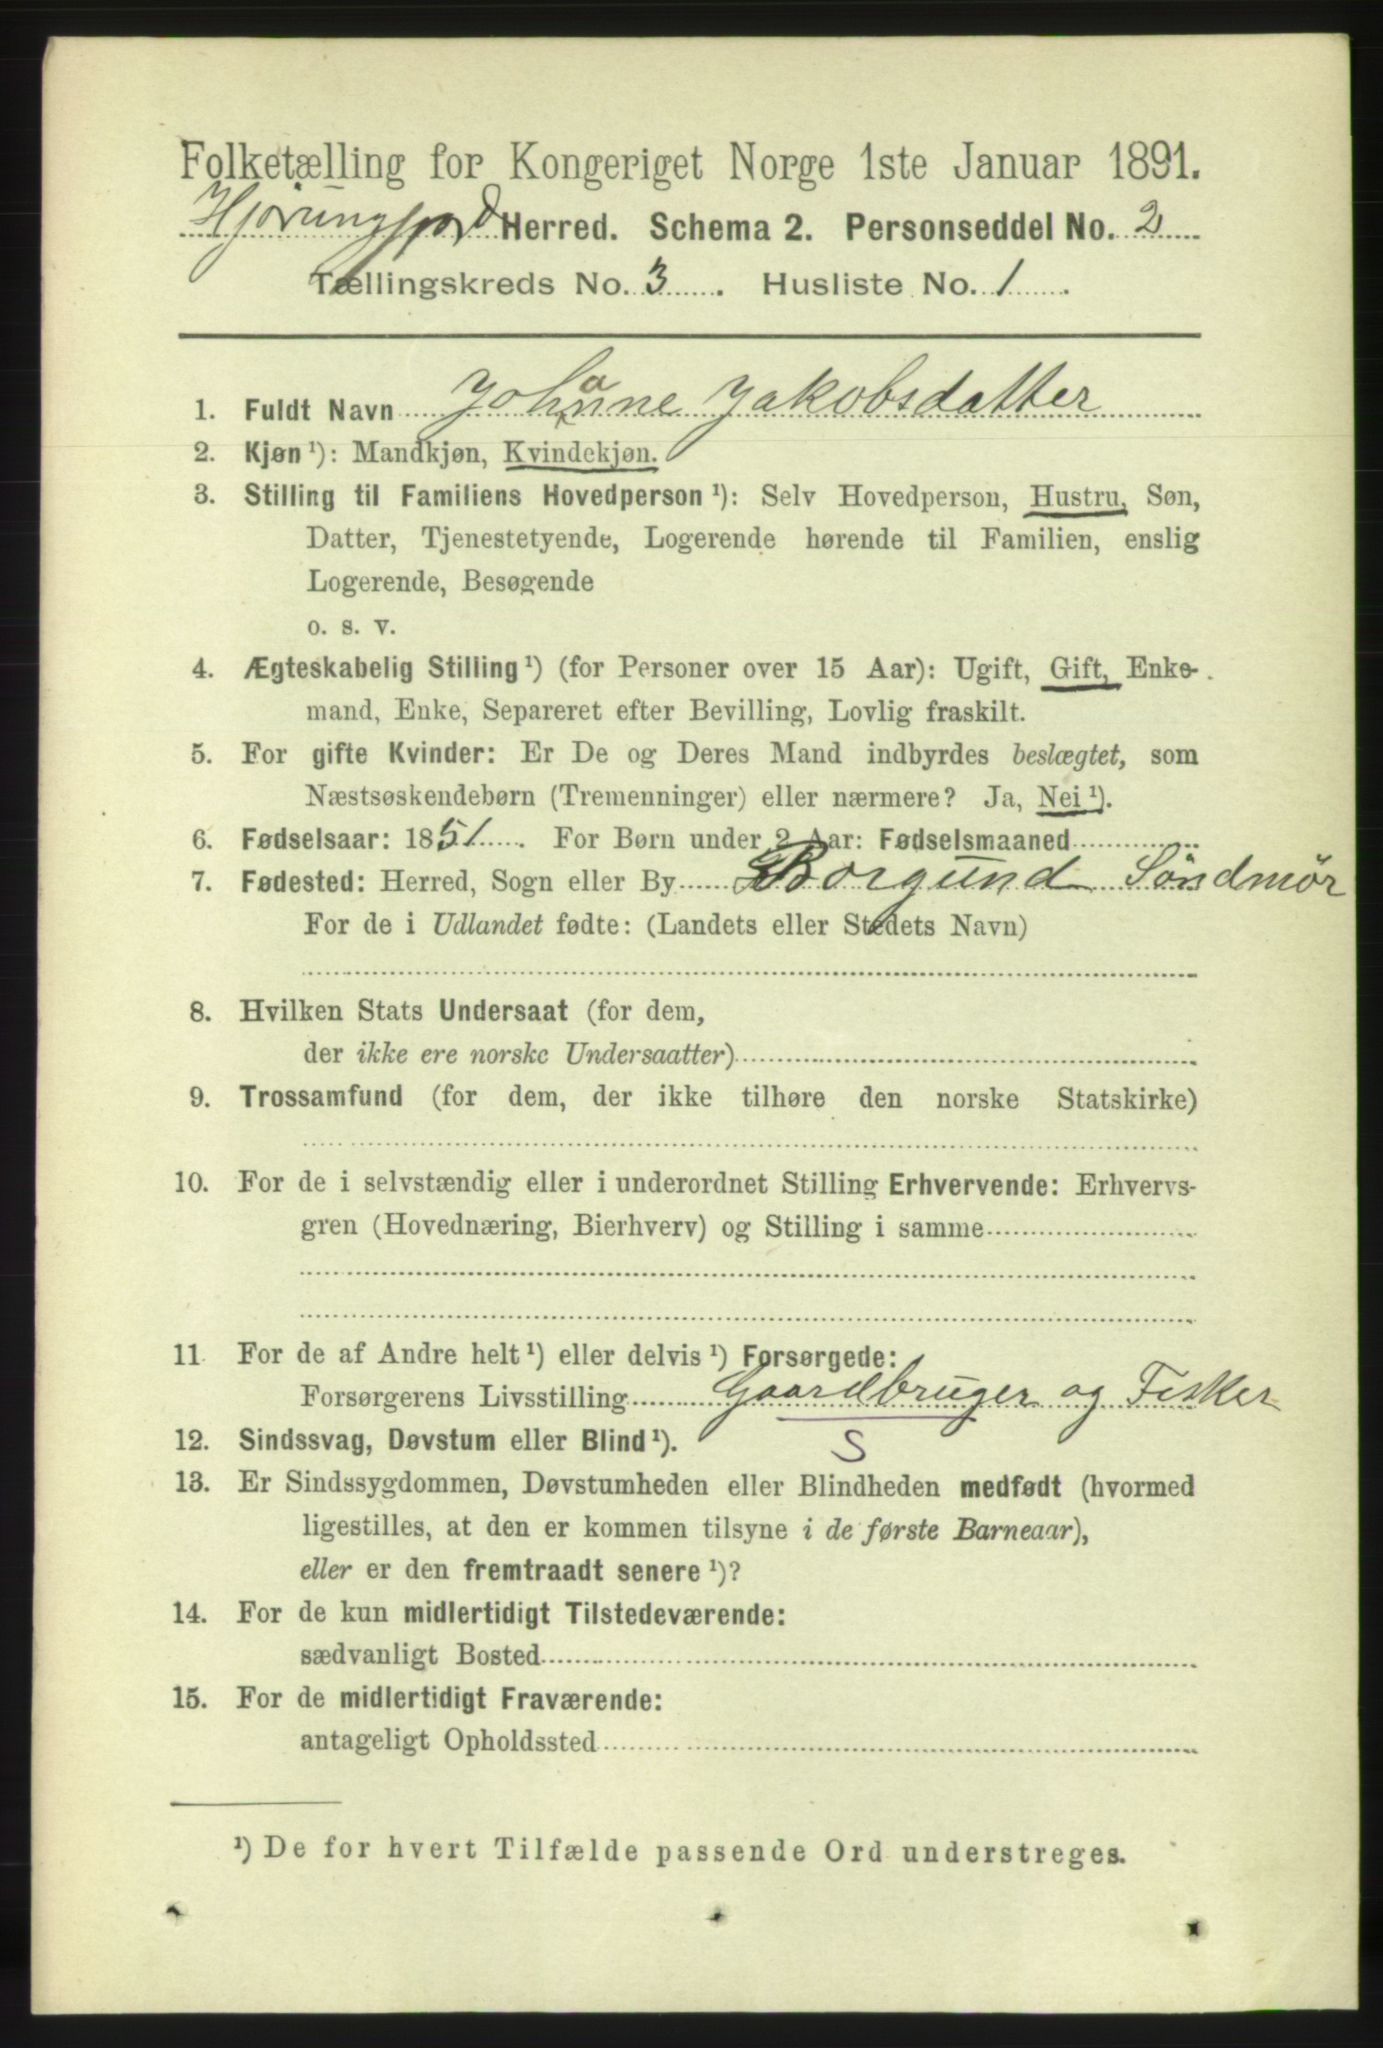 Folketælling for Kongeriget Norge 1ste Januar 1891.
Hjørungfjord Herred. Schema 2. Personseddel No. 2
Tællingskreds No. 3. Husliste No. 1.
1. Fuldt Navn Johanne Jakobsdatter
2. Kjøn ¹): Mandkjøn, Kvindekjøn.
3. Stilling til Familiens Hovedperson ¹): Selv Hovedperson, Hustru, Søn,
Datter, Tjenestetyende, Logerende hørende til Familien, enslig
Logerende, Besøgende
o. s. v.
4. Ægteskabelig Stilling ¹) (for Personer over 15 Aar): Ugift, Gift, Enke-
mand, Enke, Separeret efter Bevilling, Lovlig fraskilt.
5. For gifte Kvinder: Er De og Deres Mand indbyrdes beslægtet, som
Næstsøskendebørn (Tremenninger) eller nærmere? Ja, Nei ¹).
6. Fødselsaar: 1851. For Børn under 2 Aar: Fødselsmaaned
7. Fødested: Herred, Sogn eller By Borgund Söndmör
For de i Udlandet fødte: (Landets eller Stedets Navn)
8. Hvilken Stats Undersaat (for dem,
der ikke ere norske Undersaatter)
9. Trossamfund (for dem, der ikke tilhøre den norske Statskirke)
10. For de i selvstændig eller i underordnet Stilling Erhvervende: Erhvervs-
gren (Hovednæring, Bierhverv) og Stilling i samme
11 For de af Andre helt ¹) eller delvis ¹) Forsørgede:
Forsørgerens Livsstilling Gaardbruger og Fisker
12. Sindssvag, Døvstum eller Blind ¹). S
13. Er Sindssygdommen, Døvstumheden eller Blindheden medfødt (hvormed
ligestilles, at den er kommen tilsyne i de første Barneaar),
eller er den fremtraadt senere ¹)?
14. For de kun midlertidigt Tilstedeværende:
sædvanligt Bosted
15. For de midlertidigt Fraværende:
antageligt Opholdssted
¹) De for hvert Tilfælde passende Ord understreges.